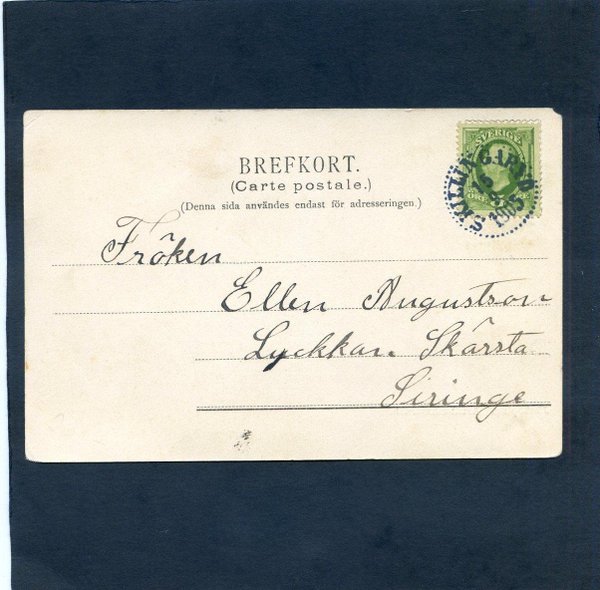 BREFKORT.
(Carte postale.)
(Denna sida användes endast för adresseringen.)
SVERIGE
SKILLINGARYD
1905
Fröken
Ellen Augustson
Lyckkan. Skärsta
Siringe